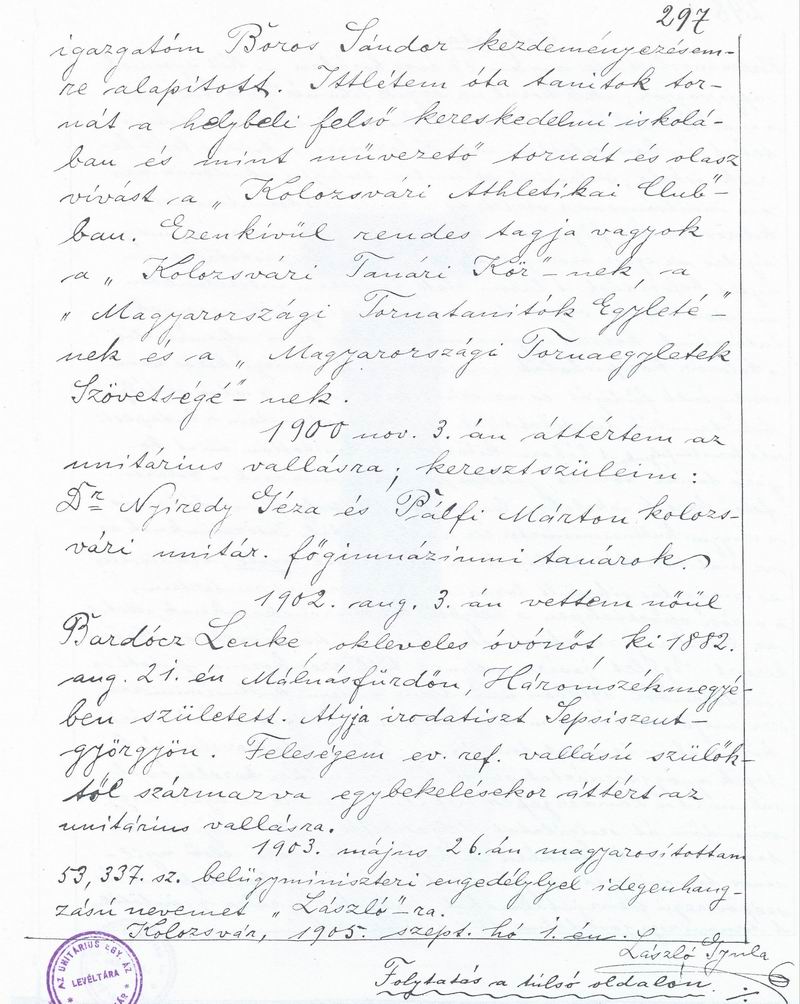 297
igazgatóm Boros Sándor kezdeményezésem-
re alapított. Ittlétem óta tanitok tor-
nát a helybeli felső kereskedelmi iskolá-
ban és mint művezető tornát és olasz
vívást a „Kolozsvári Athletikai Club"-
ban. Ezenkívül rendes tagja vagyok
a „Kolozsvári Tanári Kör"-nek, a
„Magyarországi Tornatanítók Egyleté"-
nek és a „Magyarországi Tornaegyletek
Szövetségé"-nek.
1900 nov. 3. án áttértem az
unitárius vallásra; keresztszüleim:
Dr Nyiredy Géza és Pálfi Márton kolozs-
vári unitár. főgimnáziumi tanárok.
1902. aug. 3. án vettem nőül
Bardócz Lenke, okleveles óvónőt ki 1882.
aug. 21. én Málnásfürdőn, Háromszékmegyé-
ben született. Atyja irodatiszt Sepsiszent-
györgyön. Feleségem ev. ref. vallású szülők-
től származva egybekelésekor áttért az
unitárius vallásra.
1903. május 26. án magyarosítottam
53,337. sz. belügyminiszteri engedélylyel idegenhang-
zású nevemet „László"-ra.
Kolozsvár, 1905. szept. hó 1. én.
László Gyula
Folytatás a túlsó oldalon.
AZ UNITÁRIUS EGYHÁZ
LEVÉLTÁRA